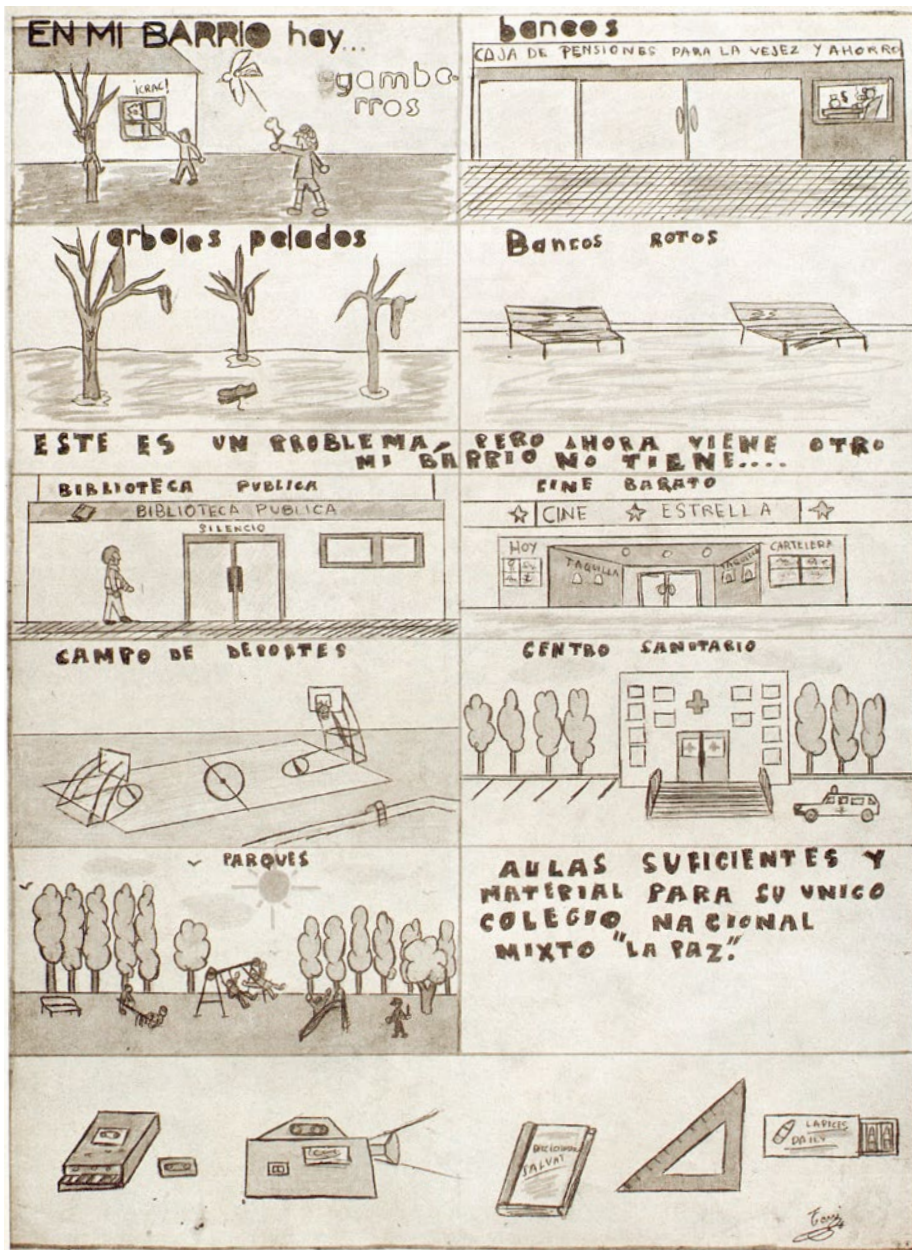 EN MI BARRIO hay...
gamberros
¡CRAC!
bancos
CAJA DE PENSIONES PARA LA VEJEZ Y AHORRO
arboles pelados
Bancos ROTOS
ESTE ES UN PROBLEMA, PERO AHORA VIENE OTRO
MI BARRIO NO TIENE....
BIBLIOTECA PUBLICA
BIBLIOTECA PUBLICA
SILENCIO
CINE BARATO
CINE ESTRELLA
HOY
TAQUILLA
TAQUILLA
CARTELERA
CAMPO DE DEPORTES
CENTRO SANITARIO
PARQUES
AULAS SUFICIENTES Y
MATERIAL PARA SU UNICO
COLEGIO NACIONAL
MIXTO "LA PAZ".
SALVAT
LAPICES
DAILY